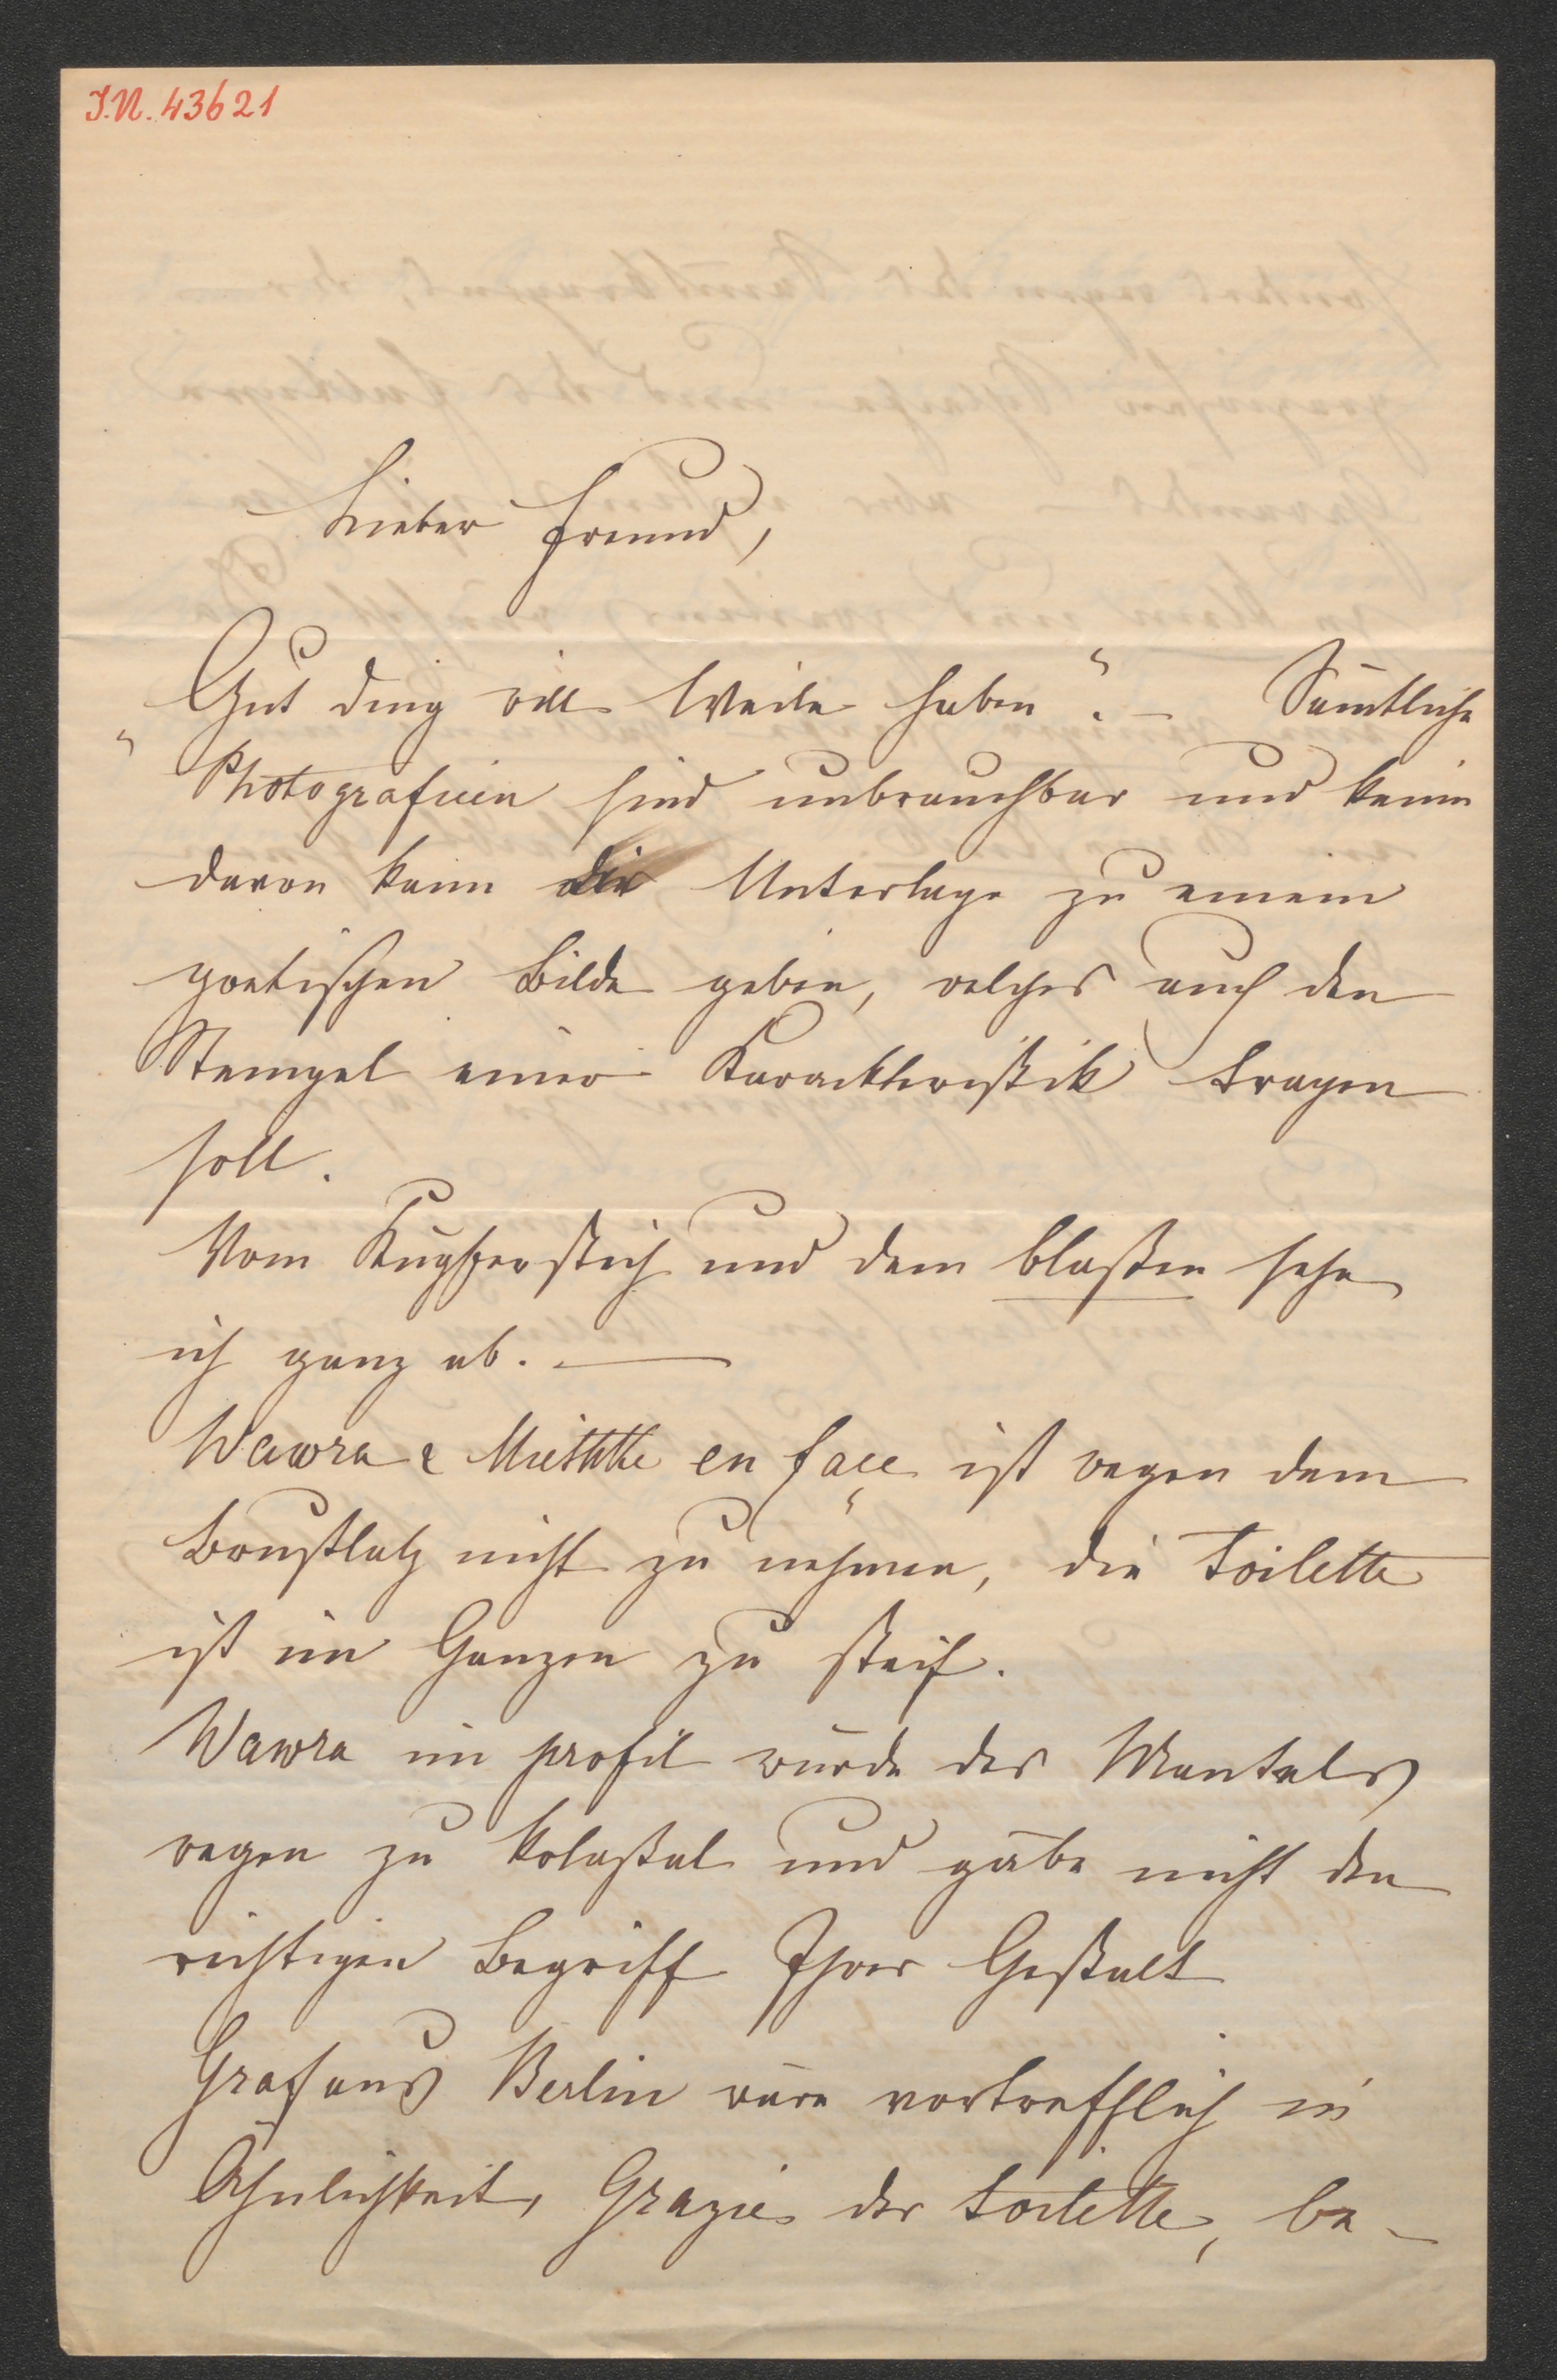 I.N. 43621
Lieber Freund,
„Gut ding will Weile haben“. — Sämtliche
Photografieen sind unbrauchbar und keine
davon kann die Unterlage zu einem
poetischen Bilde geben, welches auch den
Stempel einer Karackteristik tragen
soll.
Vom Kupferstich und dem blaßen sehe
ich ganz ab. —
Wawra & en face ist wegen dem
Brustlatz nicht zu nehmen, die Toilette
ist im Ganzen zu steif.
Wawra im profil würde des Mantels
wegen zu kolaßal und gäbe nicht den
richtigen Begriff Ihrer Gestalt
Graf aus Berlin wäre vortrefflich in
Ähnlichkeit, Grazie der Toilette, be-